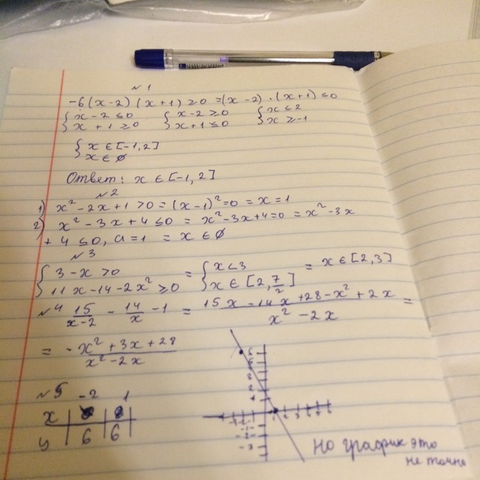 №1
-6(x-2)(x+1)≥0 =(x-2)·(x+1)≤0
{x-2≤0 {x-2≥0 {x≤2
{x+1≥0 {x+1≤0 {x≥-1
{x∈[-1,2]
{x∈∅
Ответ: x∈[-1,2]
№2
1) x²-2x+1>0=(x-1)²=0=x=1
2) x²-3x+4≤0=x²-3x+4=0=x²-3x
+4≤0, a=1 = x∈∅
№3
{3-x>0 = {x<3 = x∈[2,3]
{11x-14-2x²≥0 {x∈[2,7/2]
№4 15/(x-2) - 14/x - 1 = (15x-14x+28-x²+2x)/(x²-2x) =
= (-x²+3x+28)/(x²-2x)
№5 -2 1
x
y 6 6
но график это
не точно